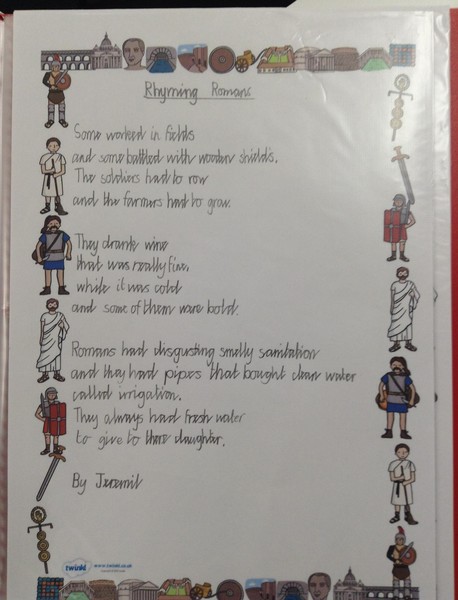 Rhyming Romans
Some worked in fields
and some battled with wooden shields.
The soldiers had to row
and the farmers had to grow.
They drank wine
that was really fine,
while it was cold
and some of them were bold.
Romans had disgusting smelly sanitation
and they had pipes that bought clean water
called irrigation.
They always had fresh water
to give to there daughter.
By Jeremil
twinkl www.twinkl.co.uk